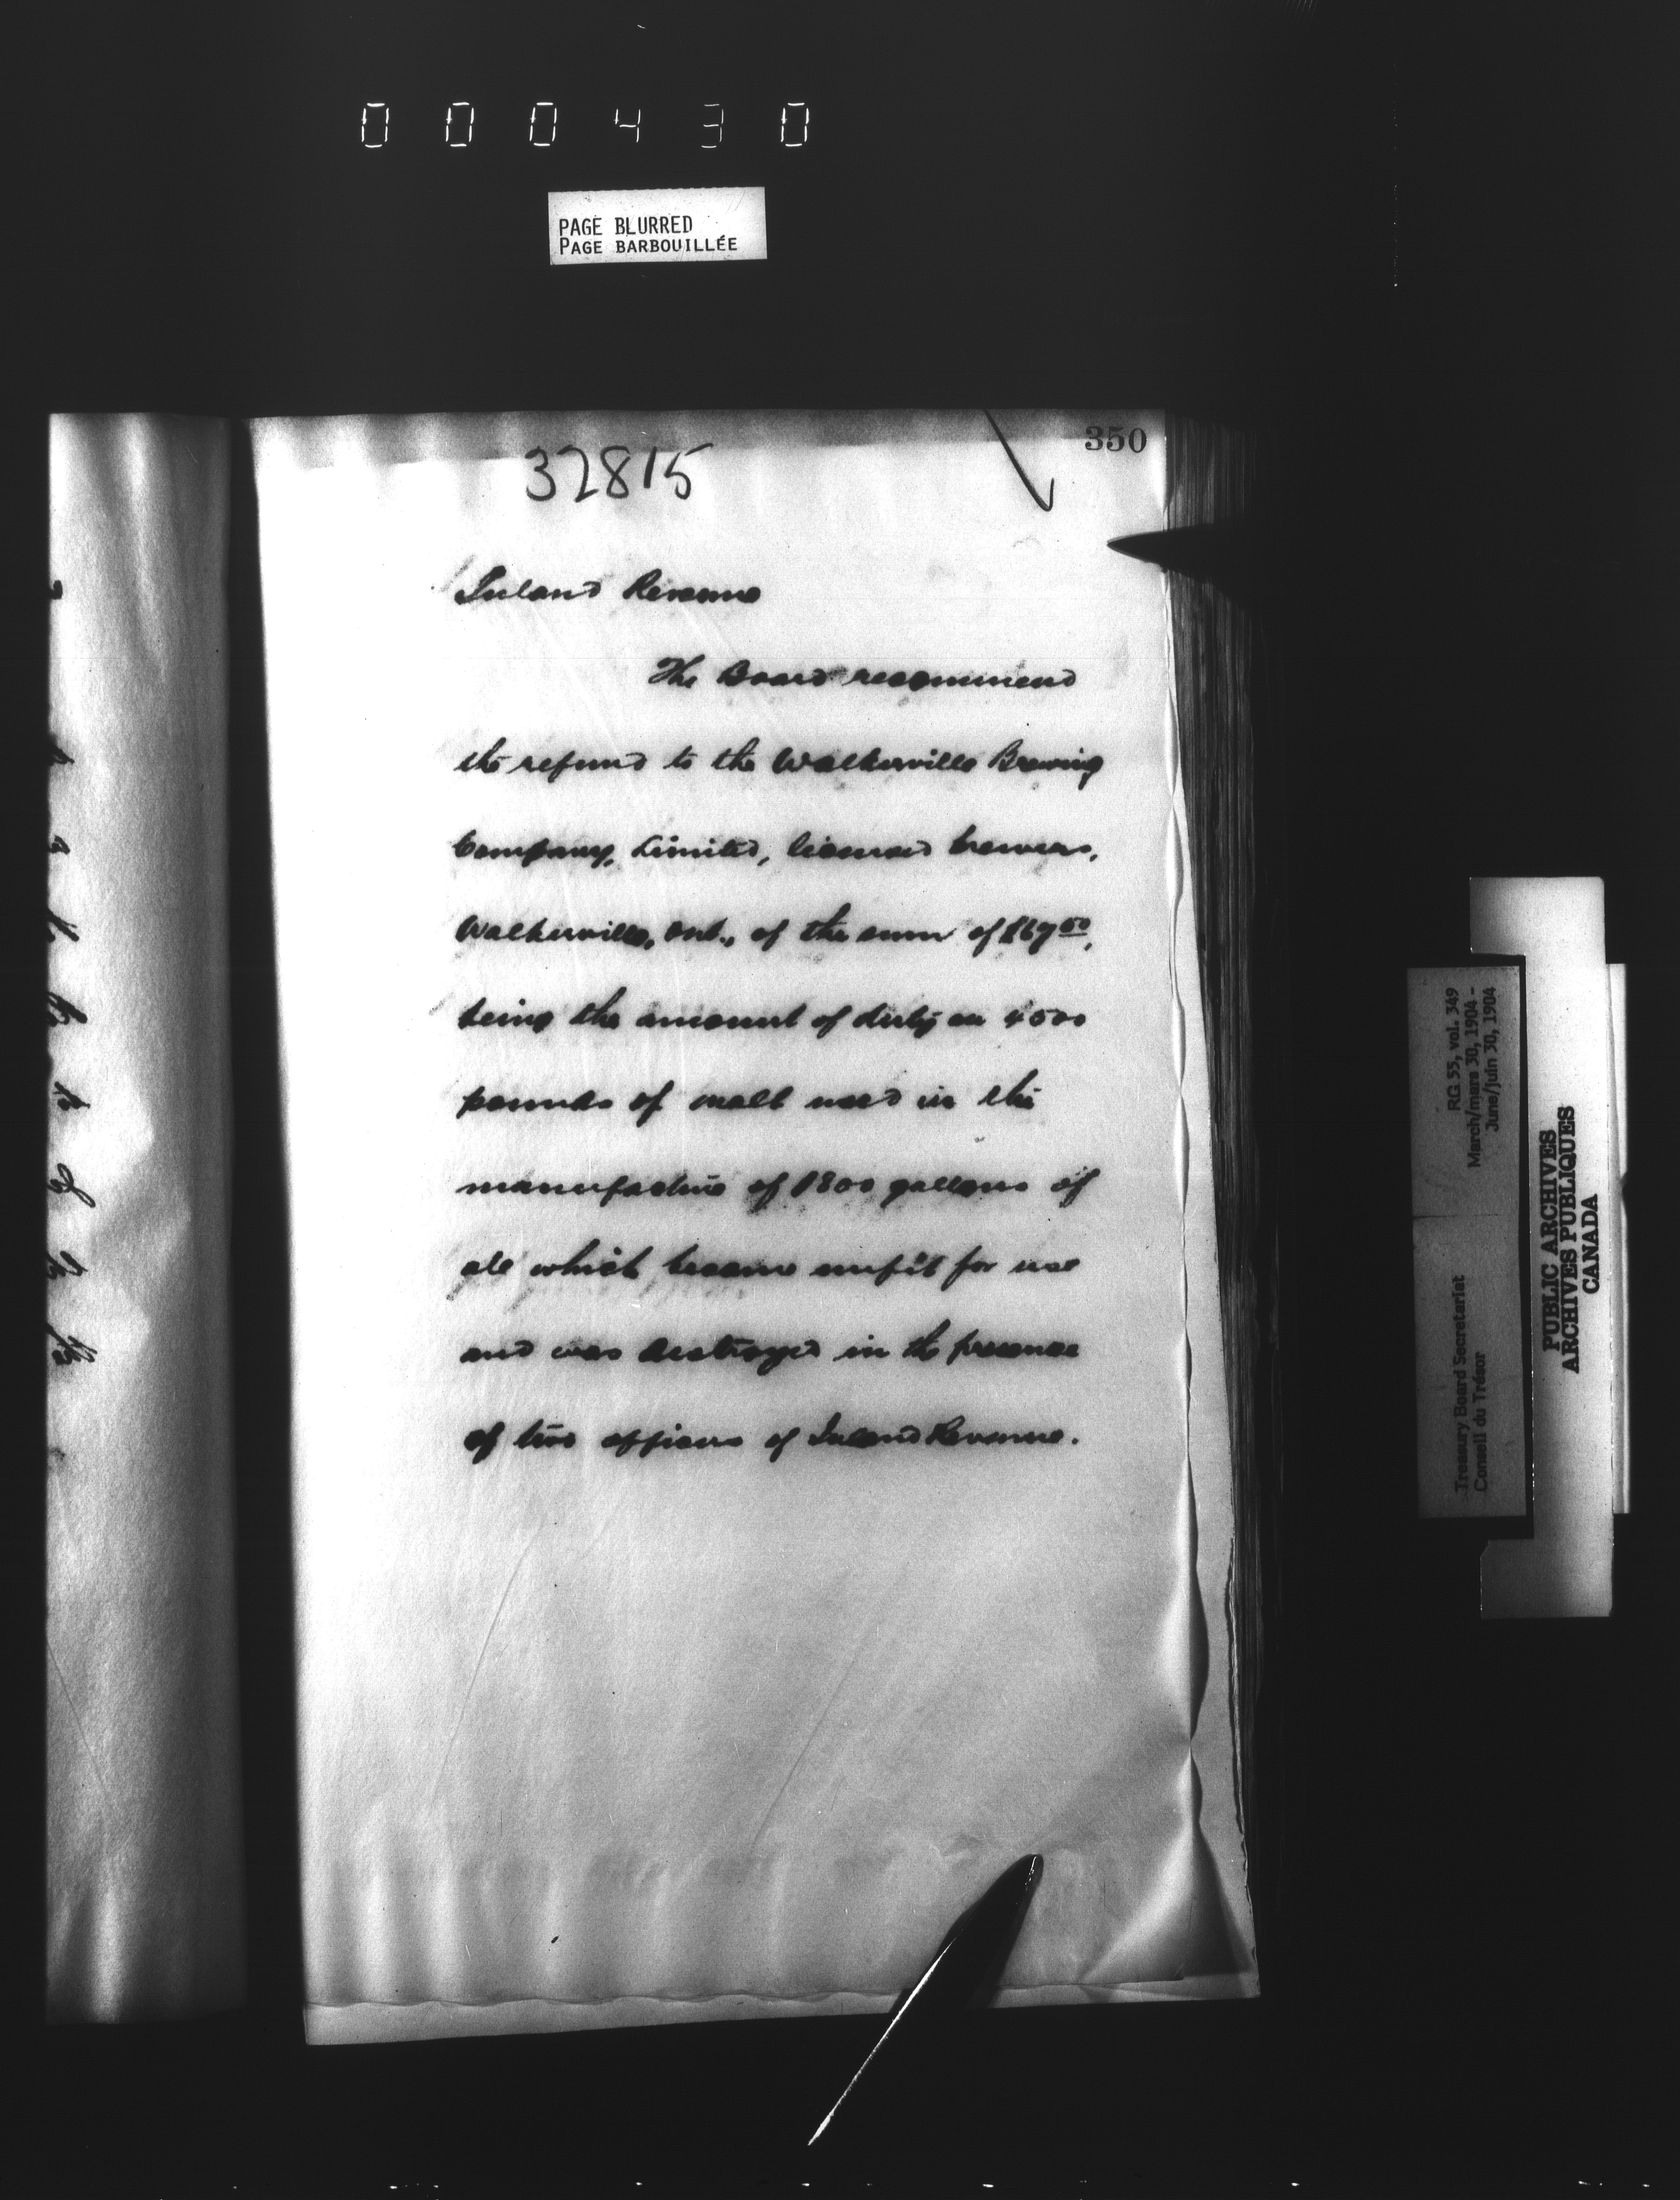 000430
PAGE BLURRED
PAGE BARBOUILLÉE
350
32815
Inland Revenue
The Board recommend
the refund to the Walkerville Brewing
Company, Limited, licensed brewers,
Walkerville, Ont., of the sum of $67 50,
being the amount of duty on 4500
pounds of malt used in the
manufacture of 1800 gallons of
ale which became unfit for use
and was destroyed in the presence
of two officers of Inland Revenue.
RG 55, vol. 349
March/mars 30, 1904 -
June/juin 30, 1904
Treasury Board Secretariat
Conseil du Trésor
PUBLIC ARCHIVES
ARCHIVES PUBLIQUES
CANADA